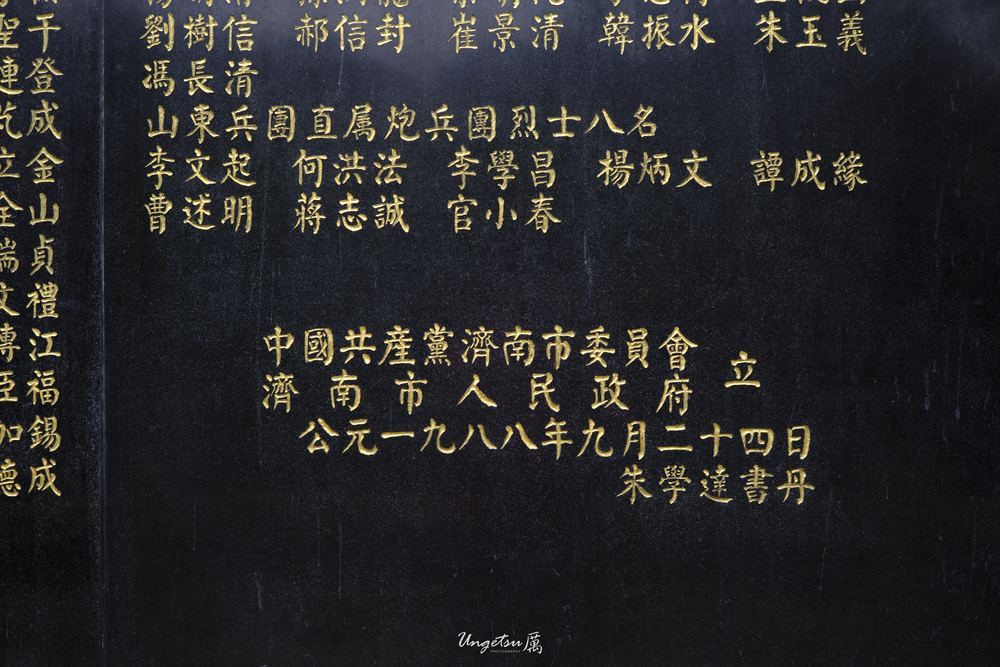 劉樹信 郝信封 崔景清 韓振水 朱玉義
馮長清
山東兵團直属炮兵團烈士八名
李文起 何洪法 李學昌 楊炳文 譚成緣
曹述明 蔣志誠 官小春
中國共産黨濟南市委員會
濟南市人民政府
立
公元一九八八年九月二十四日
朱學達書丹
干
登
成
金
山
貞
禮
江
福
錫
成
Ungetsu厲
PHOTOGRAPHY